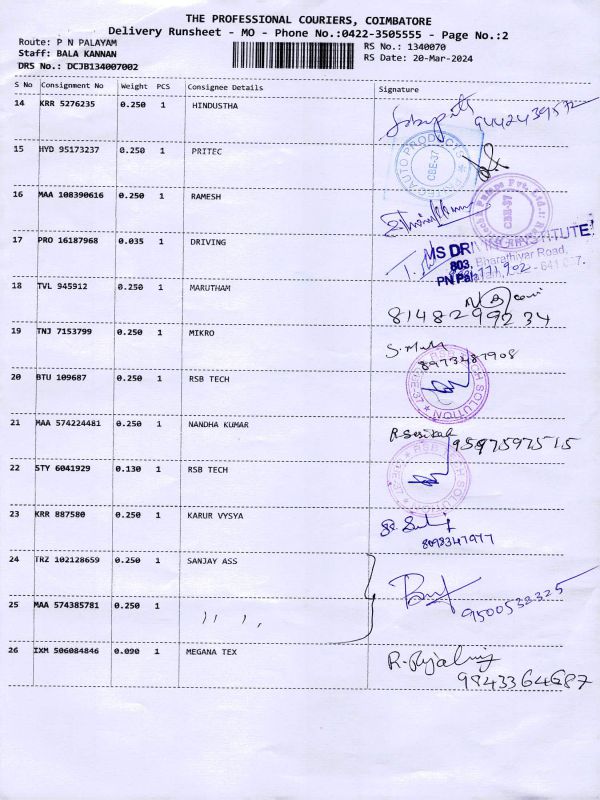 THE PROFESSIONAL COURIERS, COIMBATORE
Delivery Runsheet - MO - Phone No.:0422-3505555 - Page No.:2
Route: P N PALAYAM
Staff: BALA KANNAN
DRS No.: DCJB134007002
RS No.: 1340070
RS Date: 20-Mar-2024
S No Consignment No Weight PCS Consignee Details Signature
14 KRR 5276235 0.250 1 HINDUSTHA
15 HYD 95173237 0.250 1 PRITEC
CBE-37
16 MAA 108390616 0.250 1 RAMESH
CBE-37
17 PRO 16187968 0.035 1 DRIVING
MS DRIVING INSTITUTE
803, Bharathiyar Road,
18 TVL 945912 0.250 1 MARUTHAM
8148299234
19 TNJ 7153799 0.250 1 MIKRO
20 BTU 109687 0.250 1 RSB TECH
RSB TECH SOLUTION
21 MAA 574224481 0.250 1 NANDHA KUMAR
9597597515
22 STY 6041929 0.130 1 RSB TECH
RSB TECH SOLUTION
23 KRR 887580 0.250 1 KARUR VYSYA
24 TRZ 102128659 0.250 1 SANJAY ASS
25 MAA 574385781 0.250 1 ,, ,,
9500533325
26 IXM 506084846 0.090 1 MEGANA TEX
9843364687